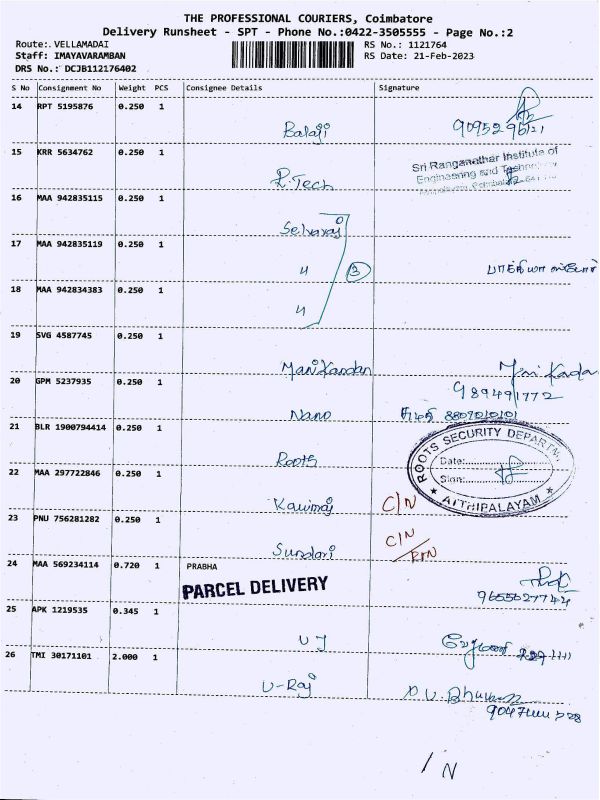 THE PROFESSIONAL COURIERS, Coimbatore
Delivery Runsheet - SPT - Phone No.:0422-3505555 - Page No.:2
Route:. VELLAMADAI
RS No.: 1121764
Staff: IMAYAVARAMBAN
RS Date: 21-Feb-2023
DRS No.: DCJB112176402
S No Consignment No Weight PCS Consignee Details Signature
14 RPT 5195876 0.250 1
Balaji
15 KRR 5634762 0.250 1
Sri Ranganathar Institute of
Engineering and Technology
R.Tech
16 MAA 942835115 0.250 1
Selvaraj
17 MAA 942835119 0.250 1
" 3
18 MAA 942834383 0.250 1
"
19 SVG 4587745 0.250 1
Manikandan Mani Kanda
20 GPM 5237935 0.250 1
9894941772
Nano 8807010101
21 BLR 1900794414 0.250 1
ROOTS SECURITY DEPARTM
Date:
Roots
Sign:
ATHIPALAYAM
22 MAA 297722846 0.250 1
Kavimaj C/N
23 PNU 756281282 0.250 1
C/N
Sundari RTN
24 MAA 569234114 0.720 1 PRABHA
PARCEL DELIVERY
9655627744
25 APK 1219535 0.345 1
U J
26 TMI 30171101 2.000 1
U-Raj
/ N